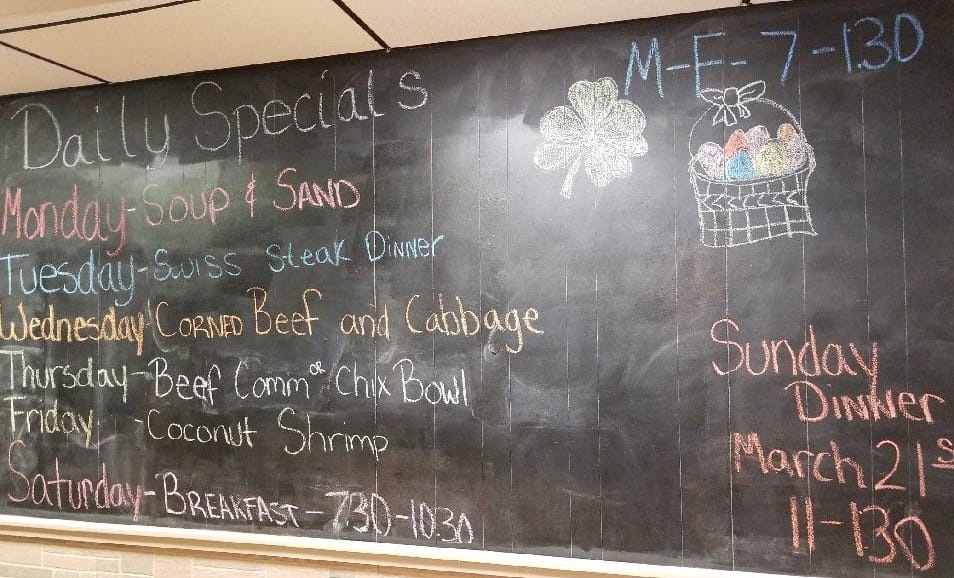 M-F- 7-1:30
Daily Specials
Monday-Soup & SAND
Tuesday-Swiss Steak Dinner
Wednesday CORNED Beef and Cabbage
Thursday-Beef Comm or Chix Bowl
Friday -Coconut Shrimp
Saturday-BREAKFAST-730-1030
Sunday
Dinner
March 21st
11-130